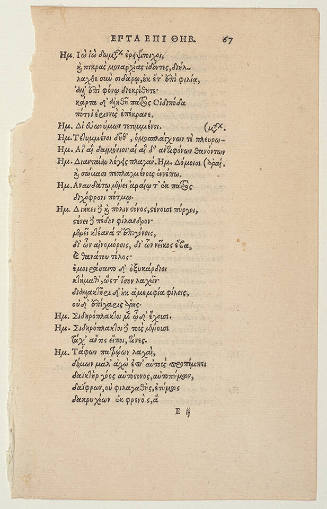 ΕΠΤΑ ΕΠΙ ΘΗΒ. 67
Ημ. Ιὼ ἰὼ δωμάτων ἐρειψίτοιχοι,
ἢ πικρὰς μοναρχίας ἰδόντες, διήλ-
λαχθε σὺν σιδάρῳ,
κάρτα δ'
πότνι' ἐρινὺς ἐπέκρανε.
Ημ. Δι' εὐωνύμων τετυμμένοι.
Ημ. Τετυμμένοι δῆθ', ὁμοσπλάγχνων τε πλευρω-
Ημ. Αἲ αἲ δαιμόνιοι αἲ αἲ δ' ἀντιφόνων θανάτων
Ημ. Διανταίαν λέγεις πλαγὰν. Ημ. Δόμοισι
σώμασι πεπλαγμένους ἐννέπω.
Ημ. Αναυδάτῳ μένει ἀραίῳ τ' ἐκ πατρὸς
διχόφρονι πότμῳ.
Ημ. Διήκει καὶ πόλιν στόνος, στένουσι πύργοι,
στένει πέδον φίλανδρον·
μένει κτέανα τ' ἐπιγόνοις,
δι' ὧν αἰνομόροις, δι' ὧν νεῖκος ἔβα,
καὶ θανάτου τέλος·
ἐμοιράσαντο δ' ὀξυκάρδιοι
κτήμαθ', ὥστ' ἴσον λαχεῖν·
διαλλακτῆρι δ' οὐκ ἀμεμφία φίλοις,
Ημ. Σιδηρόπλακτοι μὲν ὧδ' ἔχουσι.
Ημ. Σιδηρόπλακτοι δὲ τοὺς μένουσι
τάχ' ἄν τις εἴποι, τίνες.
Ημ. Τάφων πατρῴων λαχαί,
δόμων μάλ' ἀχὼ ἐπ' αὐτοὺς προπέμπει
δαϊκτὴρ γόος αὐτόστονος, αὐτοπήμων,
δαΐφρων, οὐ φιλογαθής, ἐτύμως
δακρυχέων ἐκ φρενός, ἃ
Ε ij